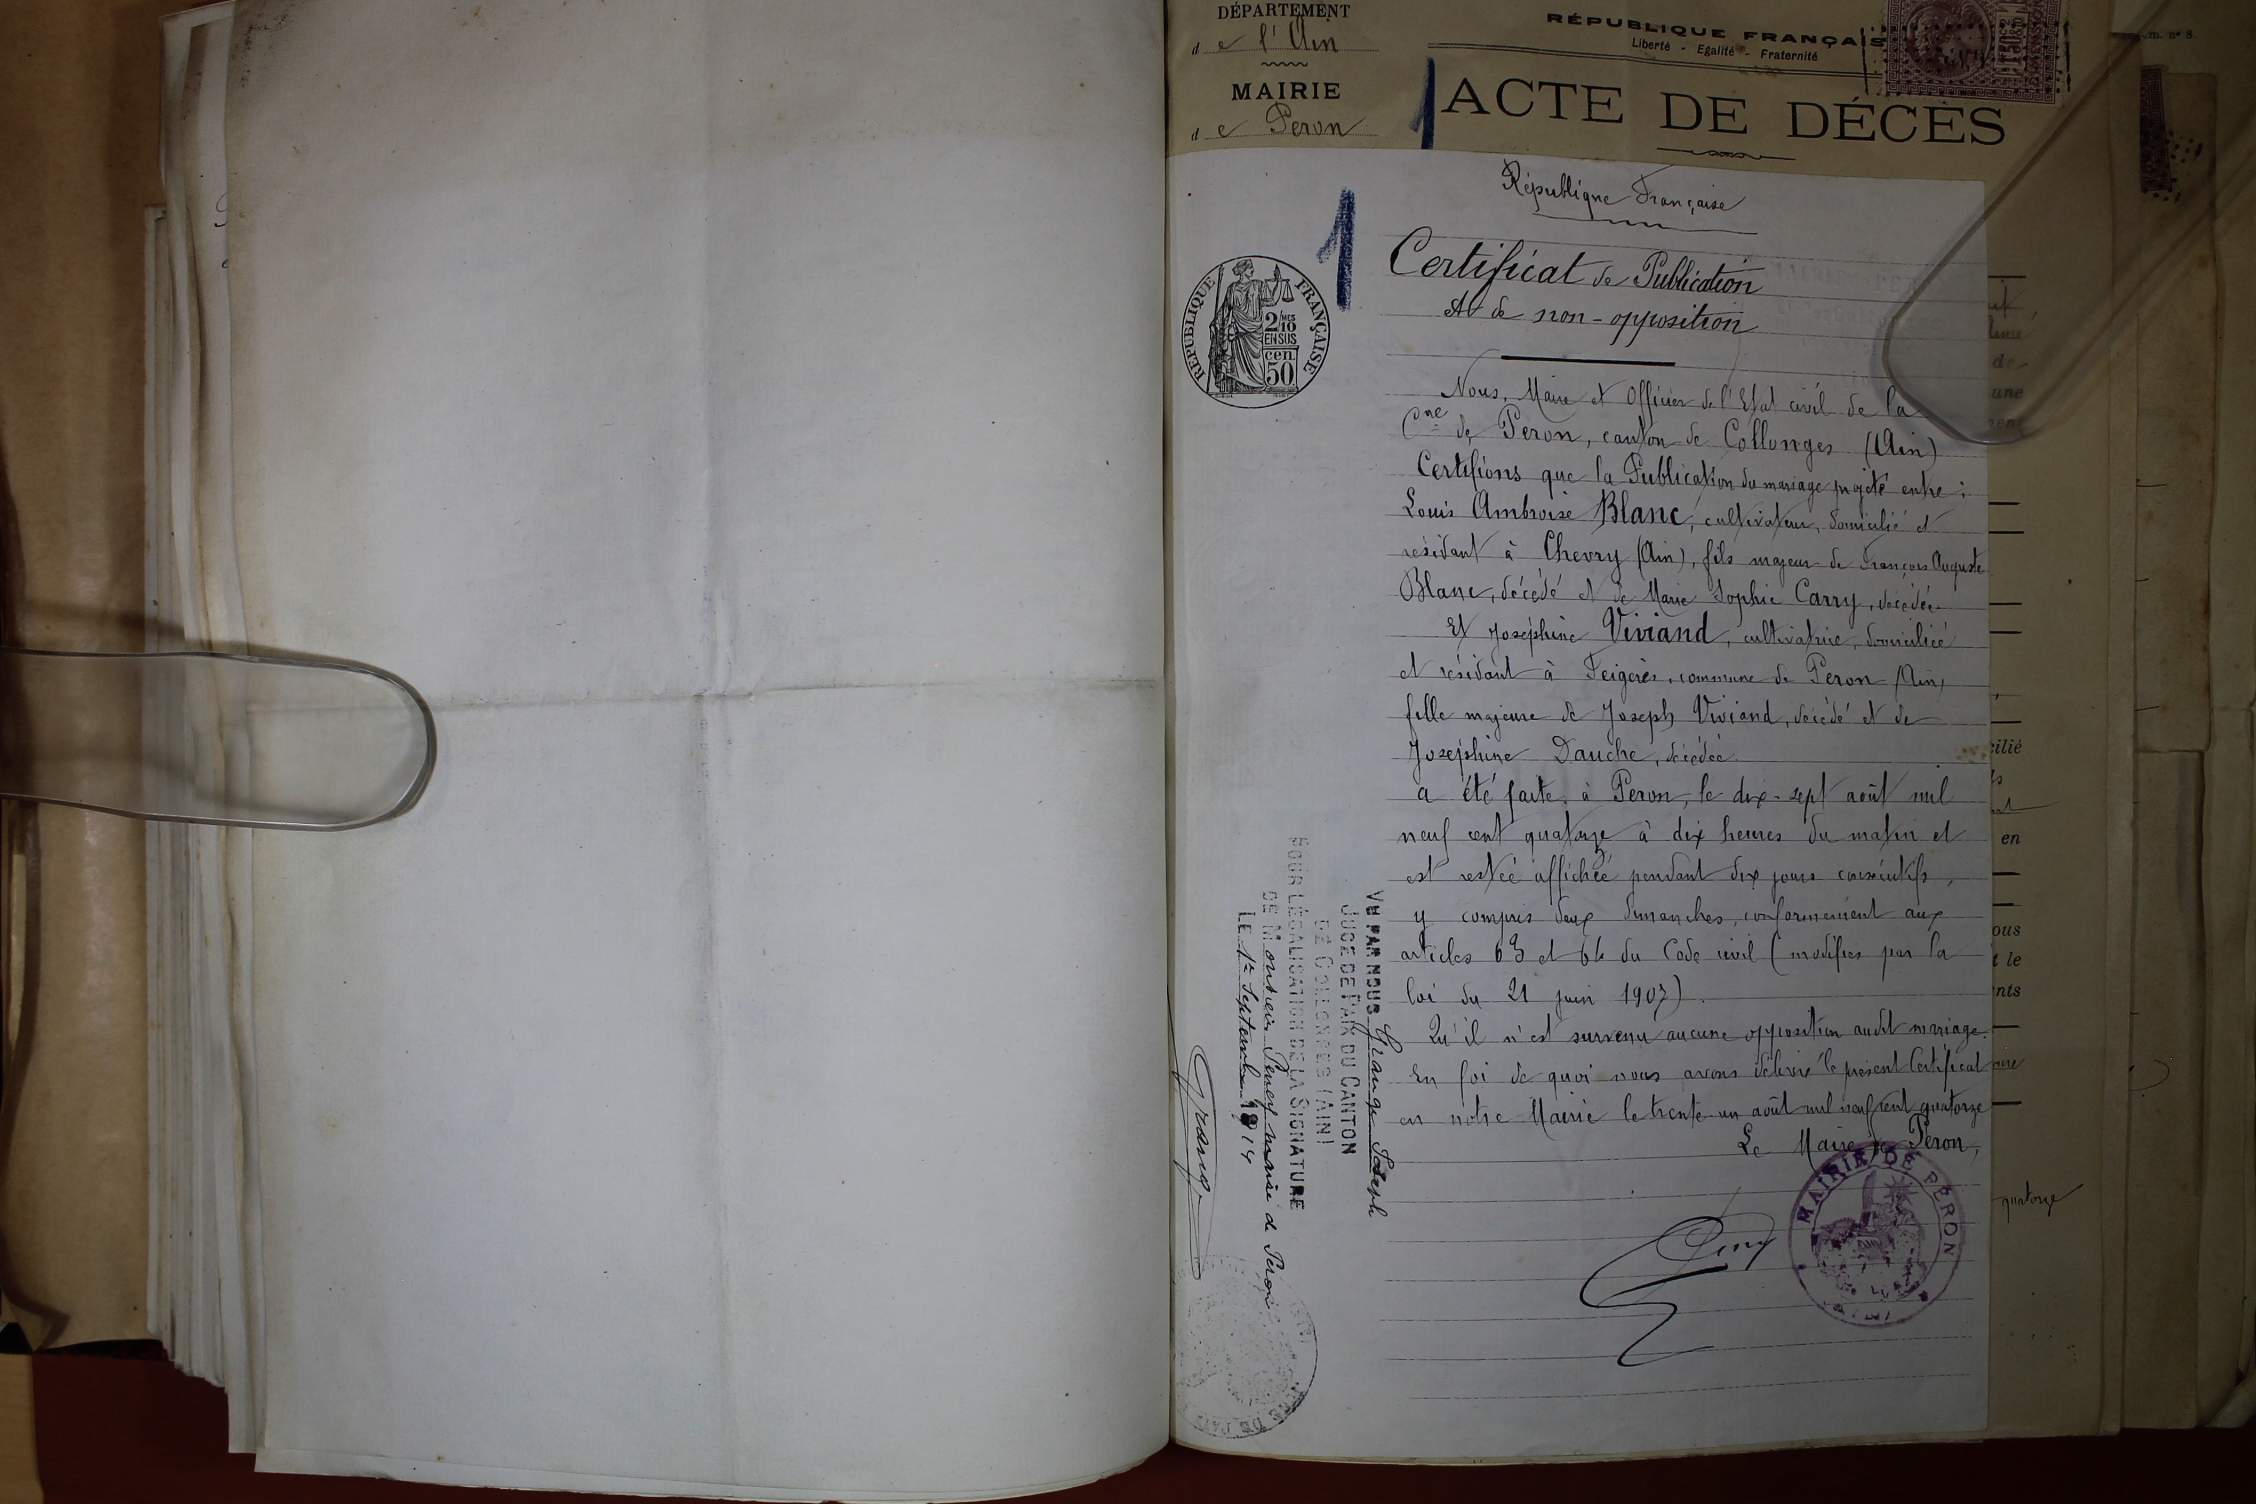 DÉPARTEMENT
de l'Ain
MAIRIE
de Peron
RÉPUBLIQUE FRANÇAIS
Liberté - Egalité - Fraternité
ACTE DE DÉCÈS
m. nº 8.
1
République Française
Certificat de Publication
et de non-opposition
RÉPUBLIQUE FRANÇAISE
2/10MES
EN SUS
cen.
50
Nous, Maire et Officier de l'Etat civil de la
Cne de Peron, canton de Collonges (Ain)
Certifions que la Publication du mariage projeté entre :
Louis Ambroise Blanc, cultivateur, domicilié et
résidant à Chevry (Ain), fils majeur de François Auguste
Blanc, décédé et de Marie Sophie Carry, décédée
Et Joséphine Viviand, cultivatrice, domiciliée
et résidant à Feigères, commune de Peron (Ain)
fille majeure de Joseph Viviand, décédé et de
Joséphine Dauche, décédée
a été faite à Peron, le dix-sept août mil
neuf cent quatorze à dix heures du matin et
est restée affichée pendant dix jours consécutifs,
y compris deux dimanches, conformément aux
articles 63 et 64 du Code civil (modifiés par la
loi du 21 juin 1907).
Qu'il n'est survenu aucune opposition audit mariage.
En foi de quoi nous avons délivré le présent Certificat
en notre Mairie le trente-un août mil neuf cent quatorze
Le Maire de Peron,
MAIRIE DE PÉRON
VU PAR NOUS Grange Joseph
JUGE DE PAIX DU CANTON
DE COLLONGES (AIN)
POUR LÉGALISATION DE LA SIGNATURE
DE Monsieur Peney maire de Peron
LE 1er Septembre 1914
Grange
une
cilié
en
ous
le
nts
quatorze